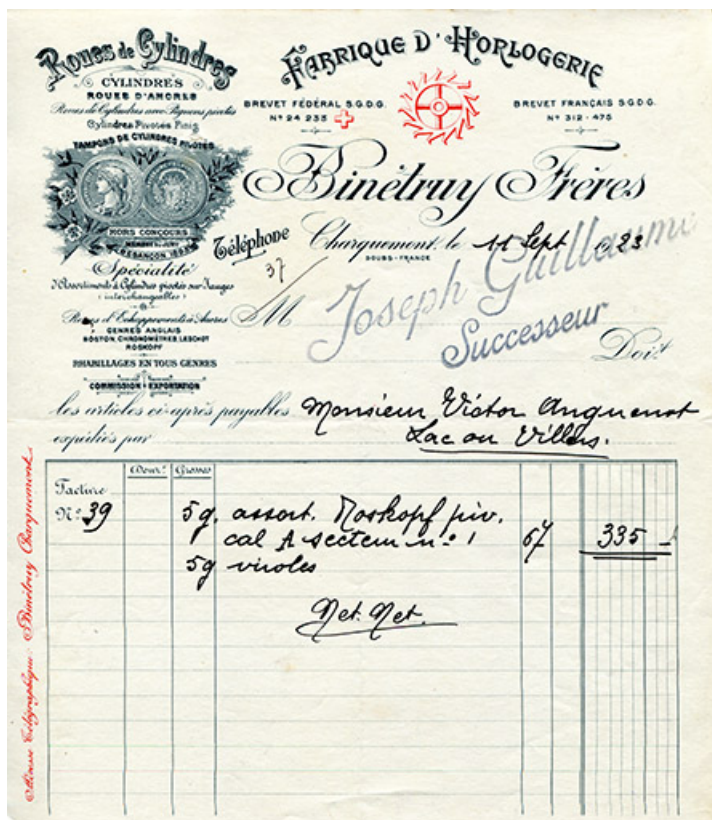 Roues de Cylindres
CYLINDRES
ROUES D'ANCRES
Roues de Cylindres avec Pignons pivotés
Cylindres Pivotés Finis
TAMPONS DE CYLINDRES PIVOTÉS
HORS CONCOURS
MEMBRE DU JURY
BESANÇON 1893
Spécialité
d'Assortiments à Cylindres pivotés sur Jauges
(interchangeables)
Roues d'Echappements à Ancres
GENRES ANGLAIS
BOSTON, CHRONOMÈTRES, LESCHOT
ROSKOPF
RHABILLAGES EN TOUS GENRES
COMMISSION - EXPORTATION
FABRIQUE D'HORLOGERIE
BREVET FÉDÉRAL S.G.D.G.
No 24 235
BREVET FRANÇAIS S.G.D.G.
No 312-475
Binétruy Frères
Téléphone
37
Charquemont, le 11 Sept 1923
DOUBS-FRANCE
M
Joseph Guillaume
Successeur
Doit
les articles ci-après payables Monsieur Victor Anguenot
expédiés par Lac ou Villers.
Douz. Grosses
Facture
No 39 5 g. assort. Roskopf piv.
cal A secteur no 1 67 335 -
5g viroles
Net. Net.
Adresse Télégraphique: Binétruy Charquemont